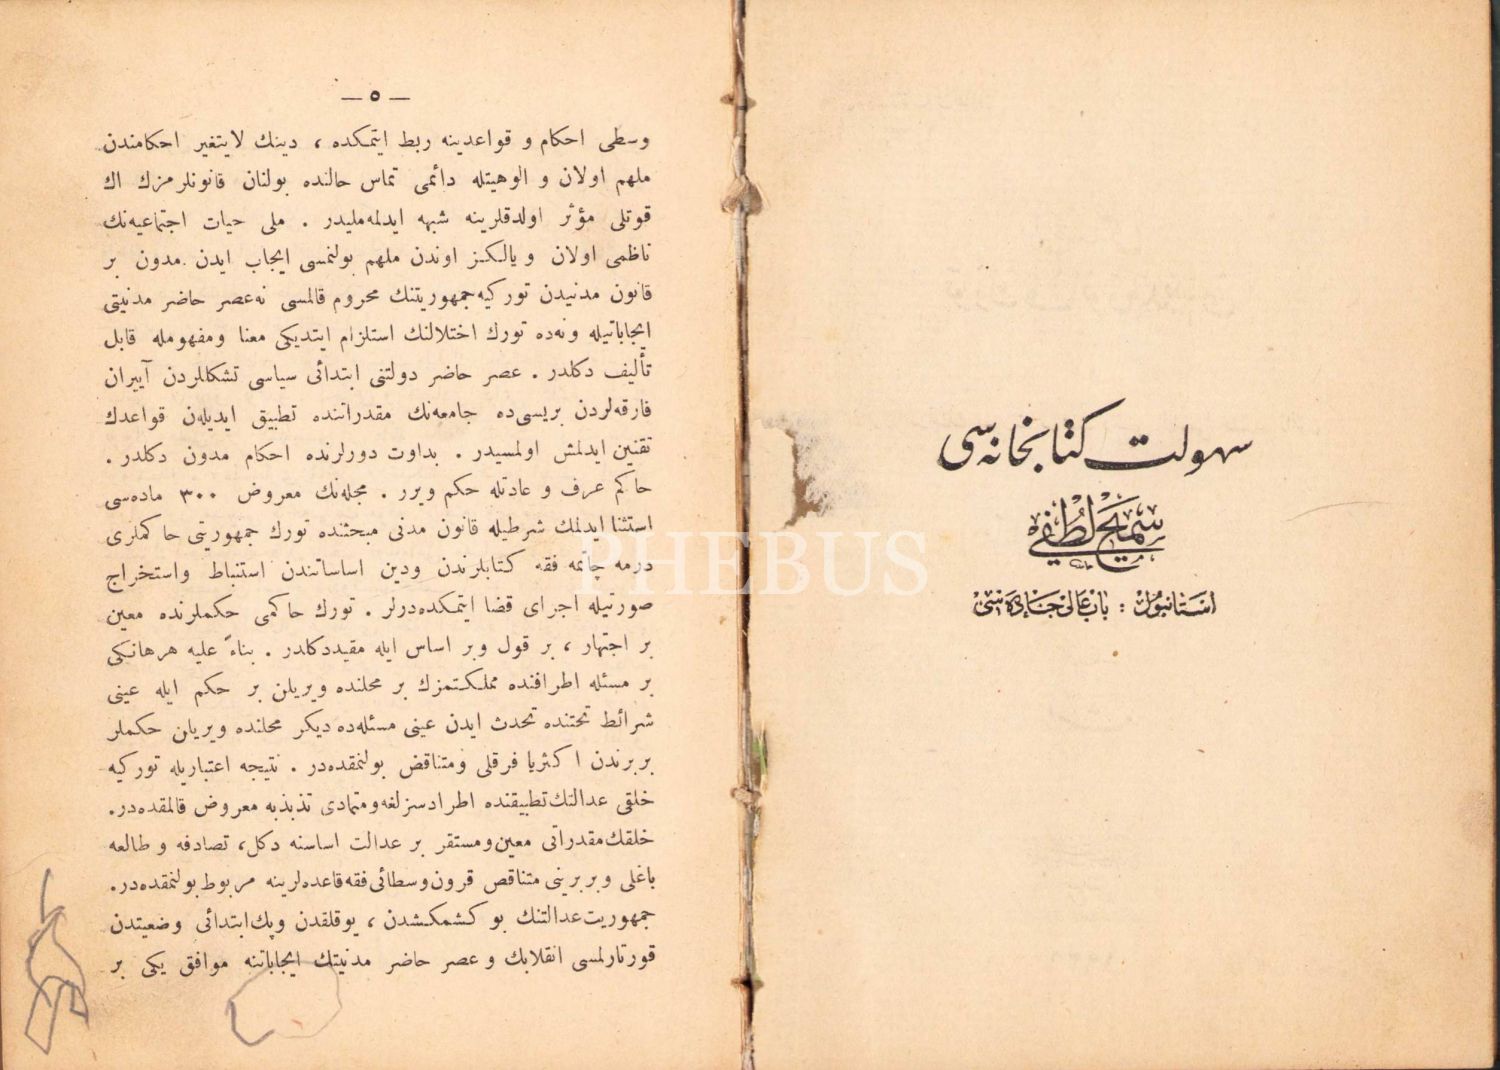 سهولت كتابخانه‌سی
سميح لطفی
استانبول : باب عالی جاده‌سی
— ٥ —
وسطی احكام و قواعدينه ربط ايتمكده ، دينك لايتغير احكامندن
ملهم اولان و الوهيتله دائمی تماس حالنده بولنان قانونلرمزك اك
قوتلی مؤثر اولدقلرينه شبهه ايدلمه‌مليدر . ملی حيات اجتماعيه‌نك
ناظمی اولان و يالكز اوندن ملهم بولنمسی ايجاب ايدن مدون بر
قانون مدنيدن توركيه‌جمهوريتنك محروم قالمسی نه‌عصر حاضر مدنيتی
ايجاباتيله ونه‌ده تورك اختلالنك استلزام ايتديكی معنا ومفهومله قابل
تأليف دكلدر . عصر حاضر دولتنی ابتدائی سياسی تشكللردن آييران
فارقه‌لردن بريسی‌ده جامعه‌نك مقدراتنده تطبيق ايديله‌ن قواعدك
تقنين ايدلمش اولمسيدر . بداوت دورلرنده احكام مدون دكلدر .
حاكم عرف و عادتله حكم ويرر . مجله‌نك معروض ٣٠٠ ماده‌سی
استثنا ايدلمك شرطيله قانون مدنی مبحثنده تورك جمهوريتی حاكملری
درمه چاتمه فقه كتابلرندن ودين اساساتندن استنباط واستخراج
صورتيله اجرای قضا ايتمكده‌درلر . تورك حاكمی حكملرنده معين
بر اجتهار ، بر قول وبر اساس ايله مقيددكلدر . بناءً عليه هرهانكی
بر مسئله اطرافنده مملكتمزك بر محلنده ويريلن بر حكم ايله عينی
شرائط تحتنده تحدث ايدن عينی مسئله‌ده ديكر محلنده ويريلن حكملر
بربرندن اكثريا فرقلی ومتناقض بولنمقده‌در . نتيجه اعتباريله توركيه
خلقی عدالتك تطبيقنده اطرادسزلغه ومتمادی تذبذبه معروض قالمقده‌در.
خلقك مقدراتی معين ومستقر بر عدالت اساسنه دكل، تصادفه و طالعه
باغلی و بربرينی متناقص قرون‌وسطائی فقه قاعده‌لرينه مربوط بولنمقده‌در.
جمهوريت عدالتنك بو كشمكشدن ، يوقلقدن وپك ابتدائی وضعيتدن
قورتارلمسی انقلابك و عصر حاضر مدنيتك ايجاباتنه موافق يكی بر
PHEBUS